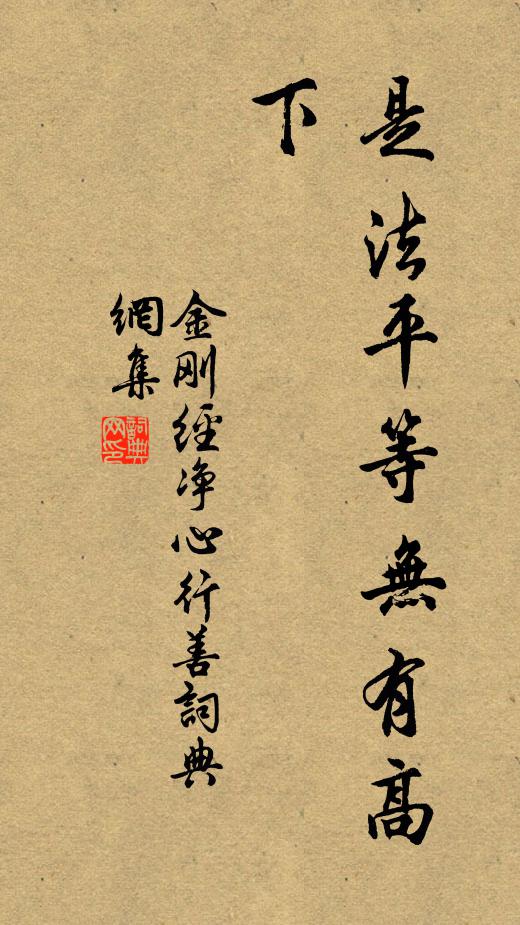 是法平等無有高
下
金剛經净心行善詞典
網集
詞典
网印